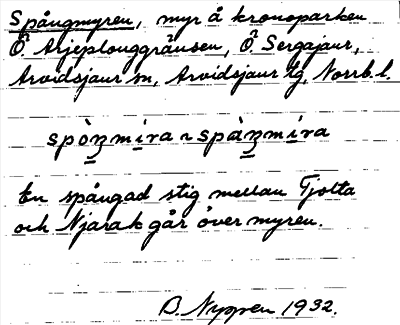 Spångmyren, myr å kronoparken
Ö Arjeplouggränsen, Ö Sergajaur,
Arvidsjaur sn, Arvidsjaur lg, Norrb. l.
spòʒmira ~ spàʒmira
En spångad stig mellan Tjolta
och Njarak går över myren.
B. Nygren 1932.